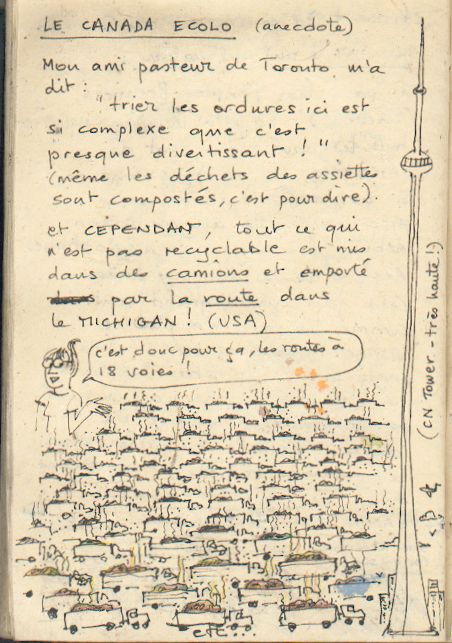 LE CANADA ECOLO (anecdote)
Mon ami pasteur de Toronto m'a
dit :
"trier les ordures ici est
si complexe que c'est
presque divertissant ! "
(même les déchets des assiettes
sont compostés, c'est pour dire).
et CEPENDANT, tout ce qui
n'est pas recyclable est mis
dans des camions et emporté
par la route dans
le MICHIGAN ! (USA)
c'est donc pour ça, les routes à
18 voies !
(CN TOWER - très haute !)
etc...